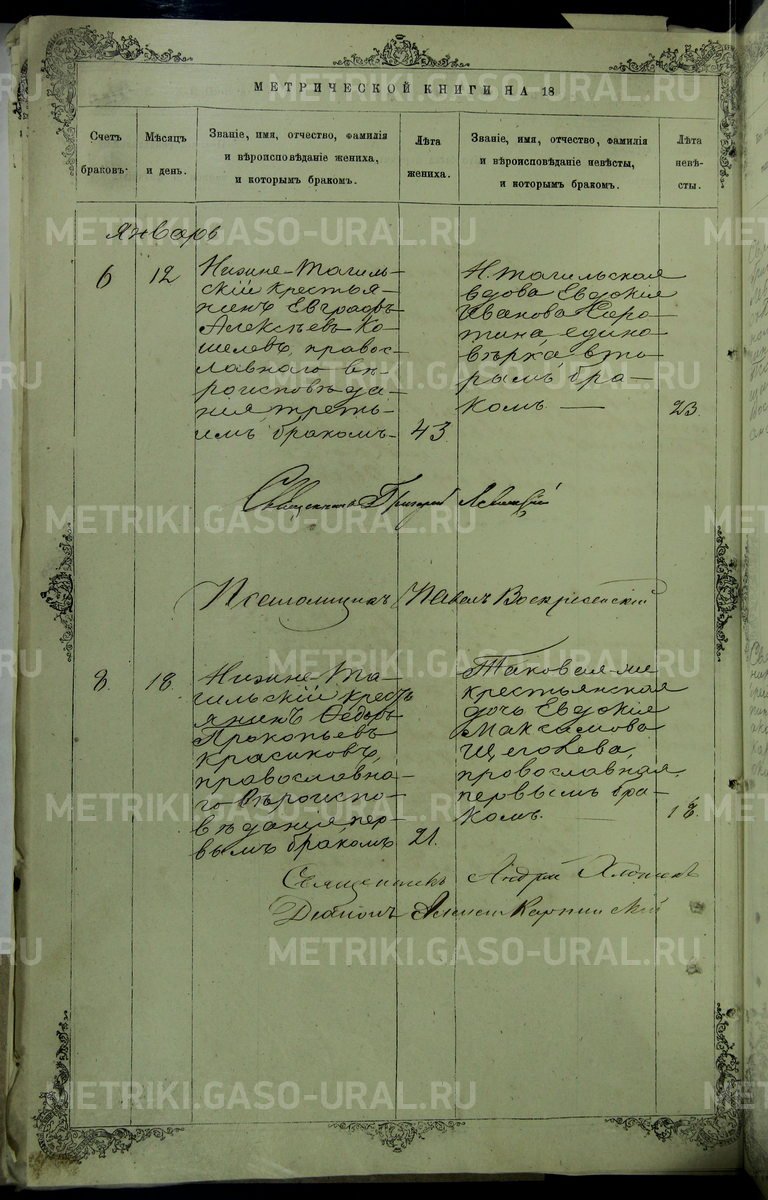 МЕТРИЧЕСКОЙ КНИГИ НА 18
Счетъ браковъ.
Мѣсяцъ и день.
Званіе, имя, отчество, фамилія и вѣроисповѣданіе жениха, и которымъ бракомъ.
Лѣта жениха.
Званіе, имя, отчество, фамилія и вѣроисповѣданіе невѣсты, и которымъ бракомъ.
Лѣта невѣсты.
Январь
6
12
Нижне-Тагиль-
скій крестья-
нинъ Евграфъ
Алексѣевъ Ко-
шелевъ, правос-
лавнаго вѣ-
роисповѣда-
нія, треть-
имъ бракомъ-
43
Н. Тагильская
вдова Евдокія
Иванова
едино-
вѣрка, вто-
рымъ бра-
комъ. —
23.
Священникъ Григорій Левицкій
Псаломщикъ Павелъ Воскресенскій
8.
18.
Нижне-Та-
гильскій кресть
янинъ Ѳедоръ
Прокопьевъ
Красиковъ,
православна-
го вѣроиспо-
вѣданія, пер-
вымъ бракомъ
21.
Таковая-же
крестьянская
дочь Евдокія
Максимова
Щеголева,
провославная,
первымъ бра-
комъ.
18.
Священникъ Андрей
Діаконъ Алексій Карпинскій
METRIKI.GASO-URAL.RU